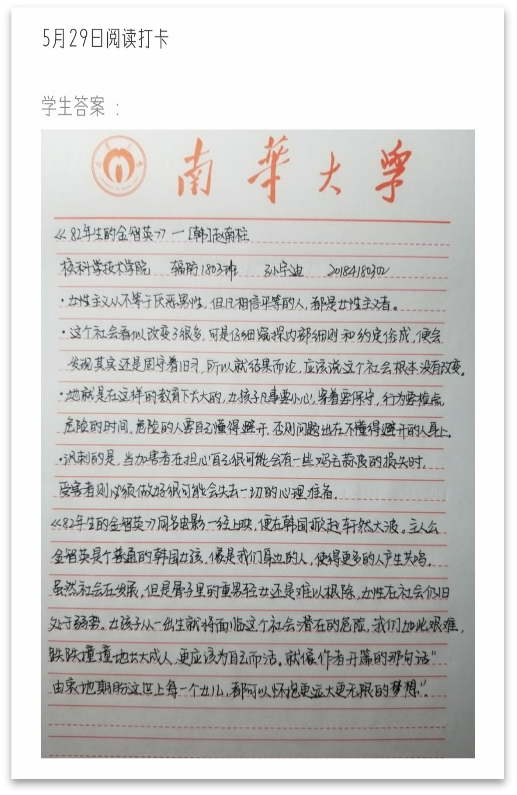 5月29日阅读打卡
学生答案 ：
南华大学
《82年生的金智英》—[韩]赵南柱
核科学技术学院 辐防1803班 孙宇迪 20184180302
·女性主义从不等于厌恶男性，但凡相信平等的人，都是女性主义者。
·这个社会看似改变了很多，可是仔细窥探内部细则和约定俗成，便会
发现其实还是固守着旧习，所以就结果而论，应该说这个社会根本没有改变。
·她就是在这样的教育下长大的，女孩子凡事要小心，穿着要保守，行为要检点，
危险的时间，危险的人要自己懂得避开，否则问题出在不懂得避开的人身上。
·讽刺的是，当加害者在担心自己很可能会有一些鸡毛蒜皮的损失时，
受害者则必须做好很可能会失去一切的心理准备。
《82年生的金智英》同名电影一经上映，便在韩国掀起轩然大波。主人公
金智英是个普通的韩国女孩，像是我们身边的人，使得更多的人产生共鸣。
虽然社会在发展，但是骨子里的重男轻女还是难以根除，女性在社会仍旧
处于弱势。女孩子从一出生就将面临这个社会潜在的危险，我们如此艰难，
跌跌撞撞地长大成人，更应该为自己而活。就像作者开篇的那句话“
由衷地期盼这世上每一个女儿，都可以怀抱更远大更无限的梦想”。